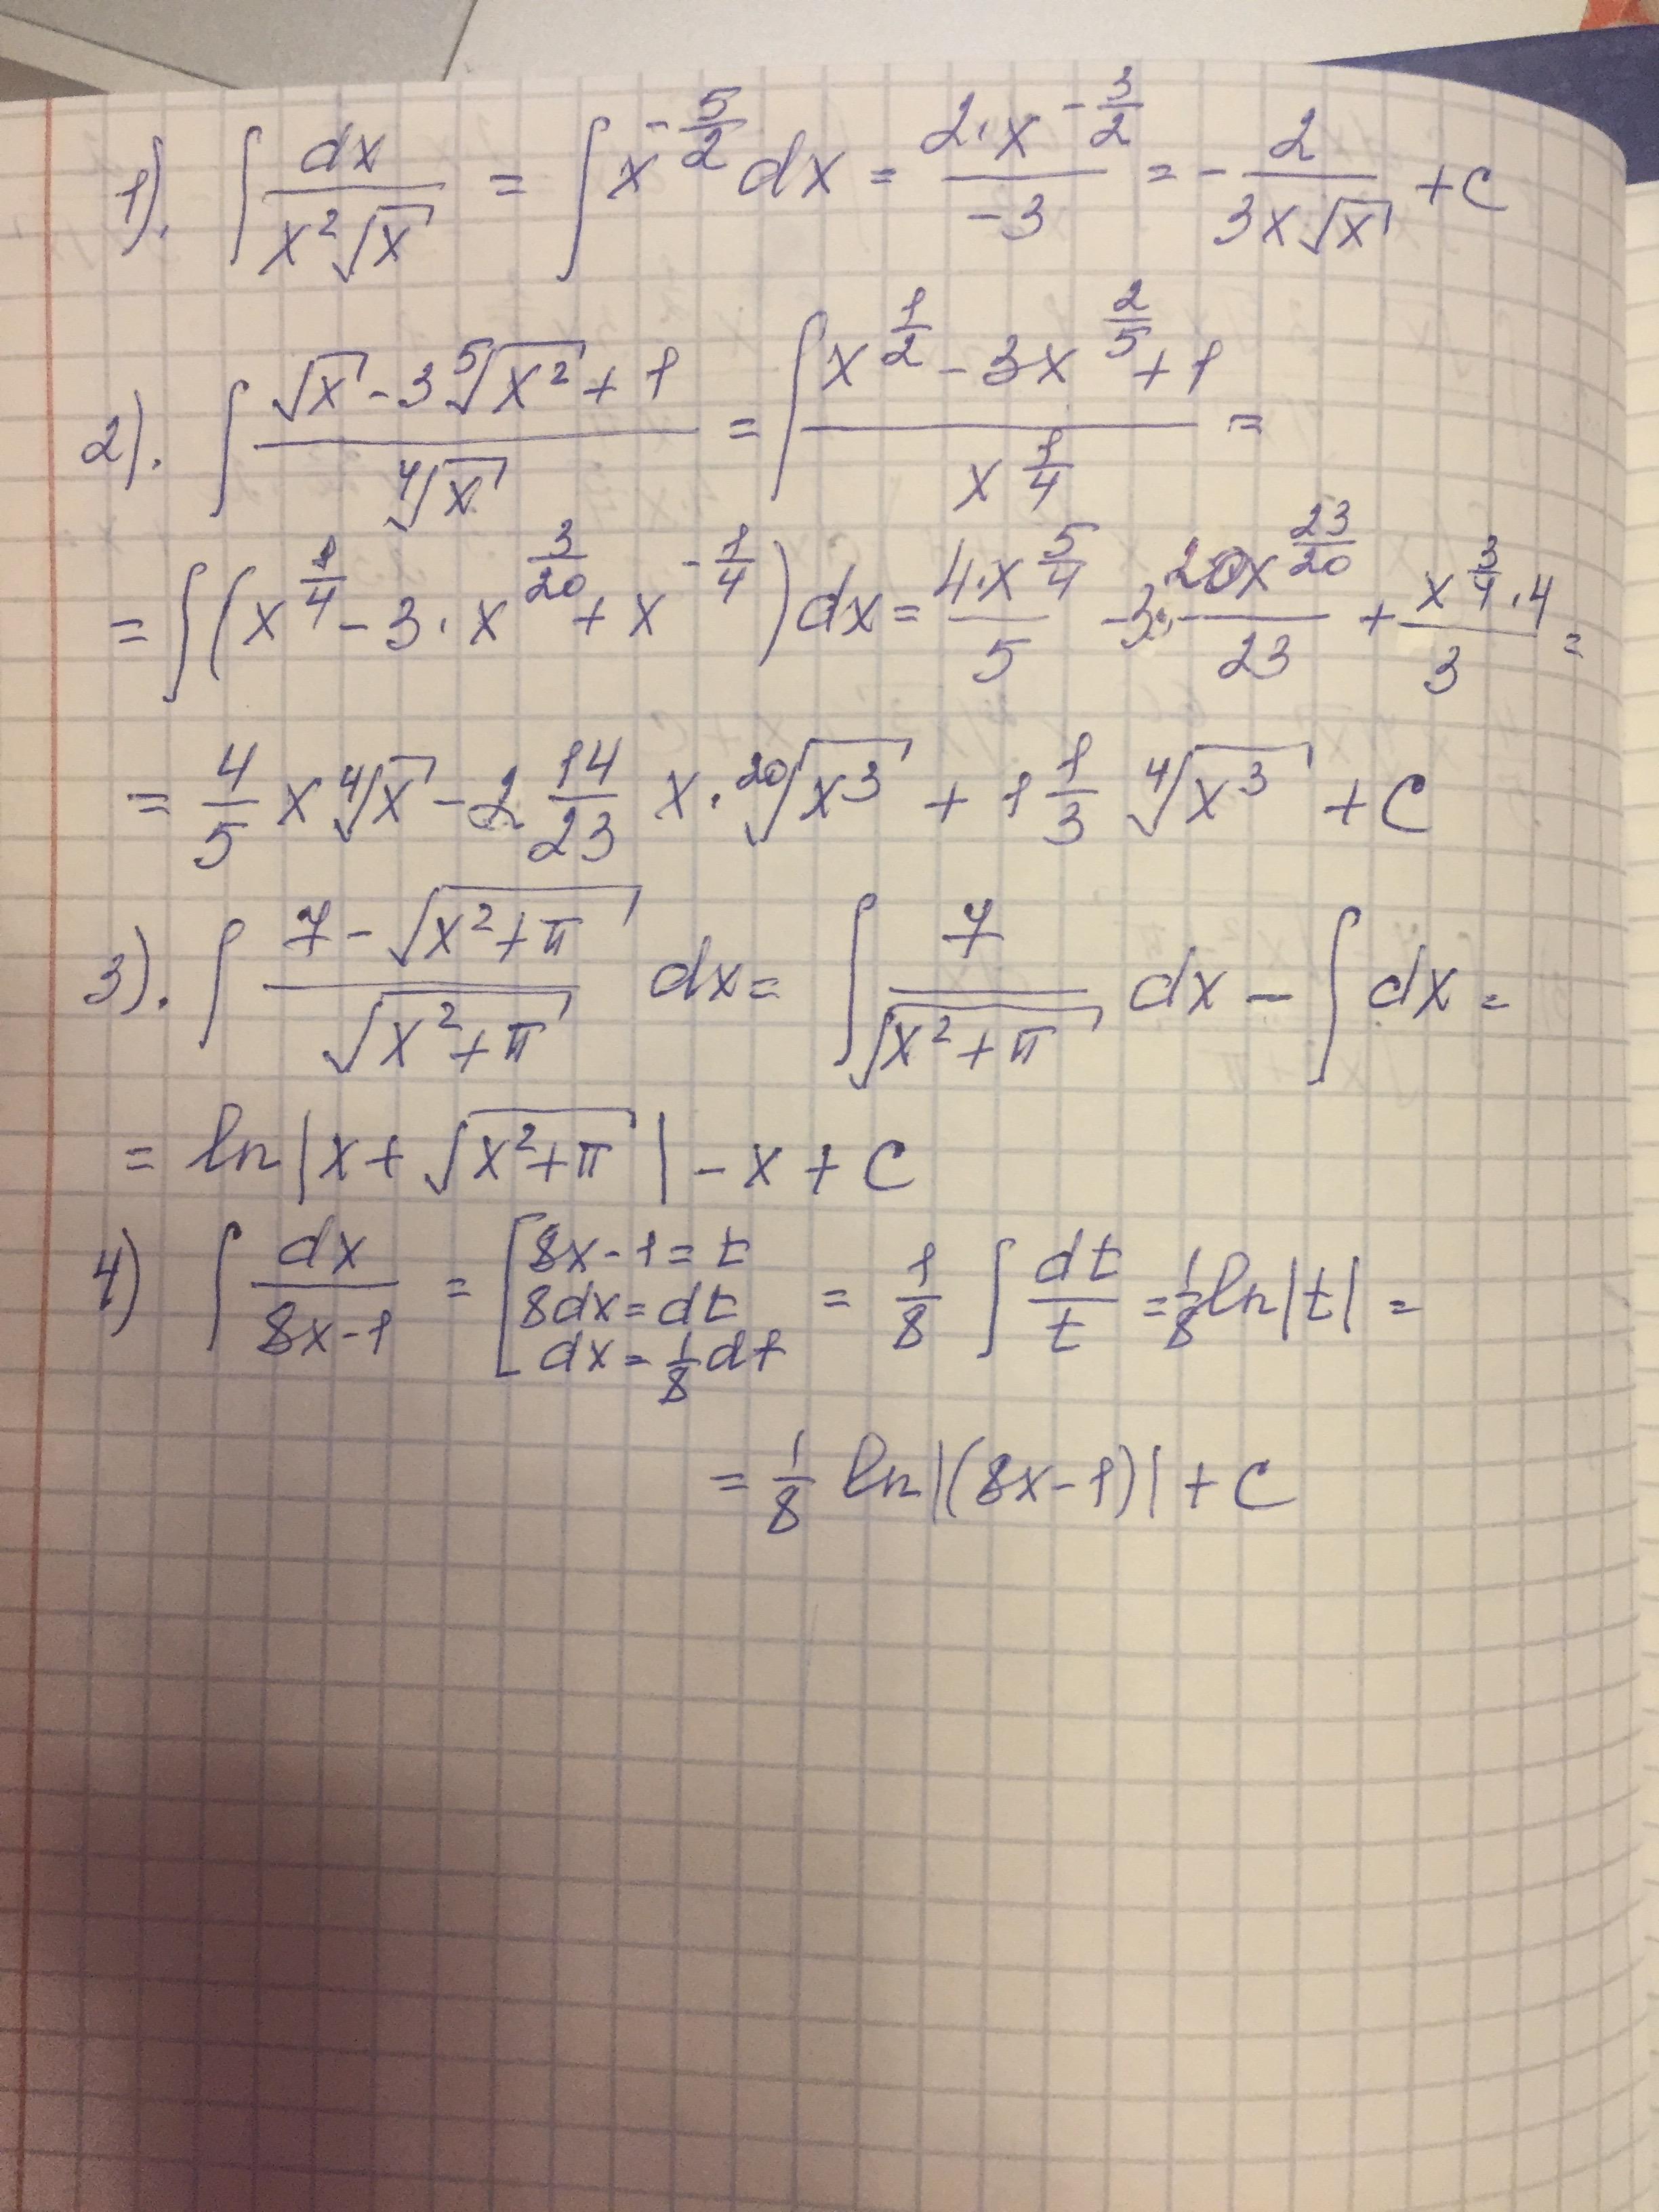 1). ∫ dx/(x²√x) = ∫ x^(-5/2) dx = (2·x^(-3/2))/(-3) = - 2/(3x√x) + C
2). ∫ (√x - 3⁵√(x²) + 1)/(⁴√x) = ∫ (x^(1/2) - 3x^(2/5) + 1)/(x^(1/4)) =
= ∫ (x^(1/4) - 3·x^(3/20) + x^(-1/4)) dx = (4·x^(5/4))/5 - 3·(20x^(23/20))/23 + (x^(3/4)·4)/3 =
= 4/5 x ⁴√x - 2 14/23 x · ²⁰√(x³) + 1 1/3 ⁴√(x³) + C
3). ∫ (7 - √(x²+π))/(√(x²+π)) dx = ∫ 7/(√(x²+π)) dx - ∫ dx =
= ln|x + √(x²+π)| - x + C
4) ∫ dx/(8x-1) = [8x-1 = t
8dx = dt
dx = 1/8 dt
= 1/8 ∫ dt/t = 1/8 ln|t| =
= 1/8 ln|(8x-1)| + C